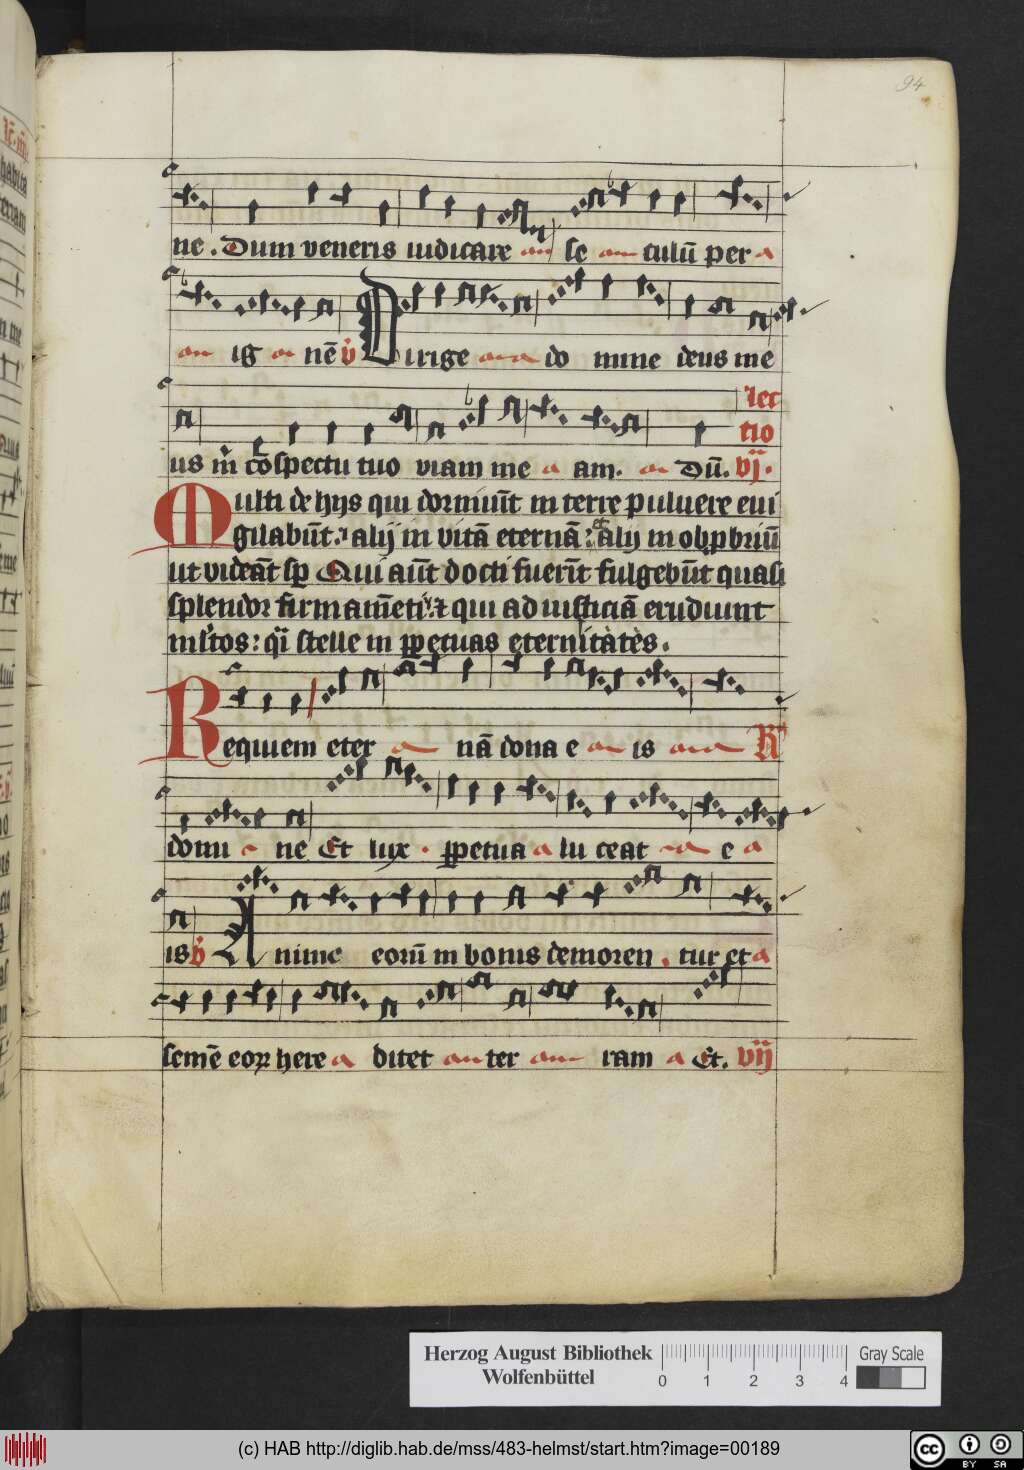 94
ne. Dum veneris iudicare se culū per
ig nē ꝟ Dirige do mine deus me
lec
tio
us in cōspectu tuo viam me am. Dū. vij.
Multi de hijs qui dormiūt in terre puluere eui
gilabūt. alij in vitā eternā: et alij in obp̱briū
ut videāt sp̱ Qui aūt docti fuerīt fulgebūt quasi
splendor firmamēti: ⁊ qui ad iusticiā erudiunt
m̄ltos: q̄i stelle in p̱petuas eternitates.
Requiem eter nā dona e is R
domi ne Et lux p̱petua lu ceat e
is ꝟ Anime eorū in bonis demoren tur et
semē eoꝝ here ditet ter ram Et. viij
Herzog August Bibliothek
Wolfenbüttel
0 1 2 3 4
Gray Scale
(c) HAB http://diglib.hab.de/mss/483-helmst/start.htm?image=00189
cc BY SA